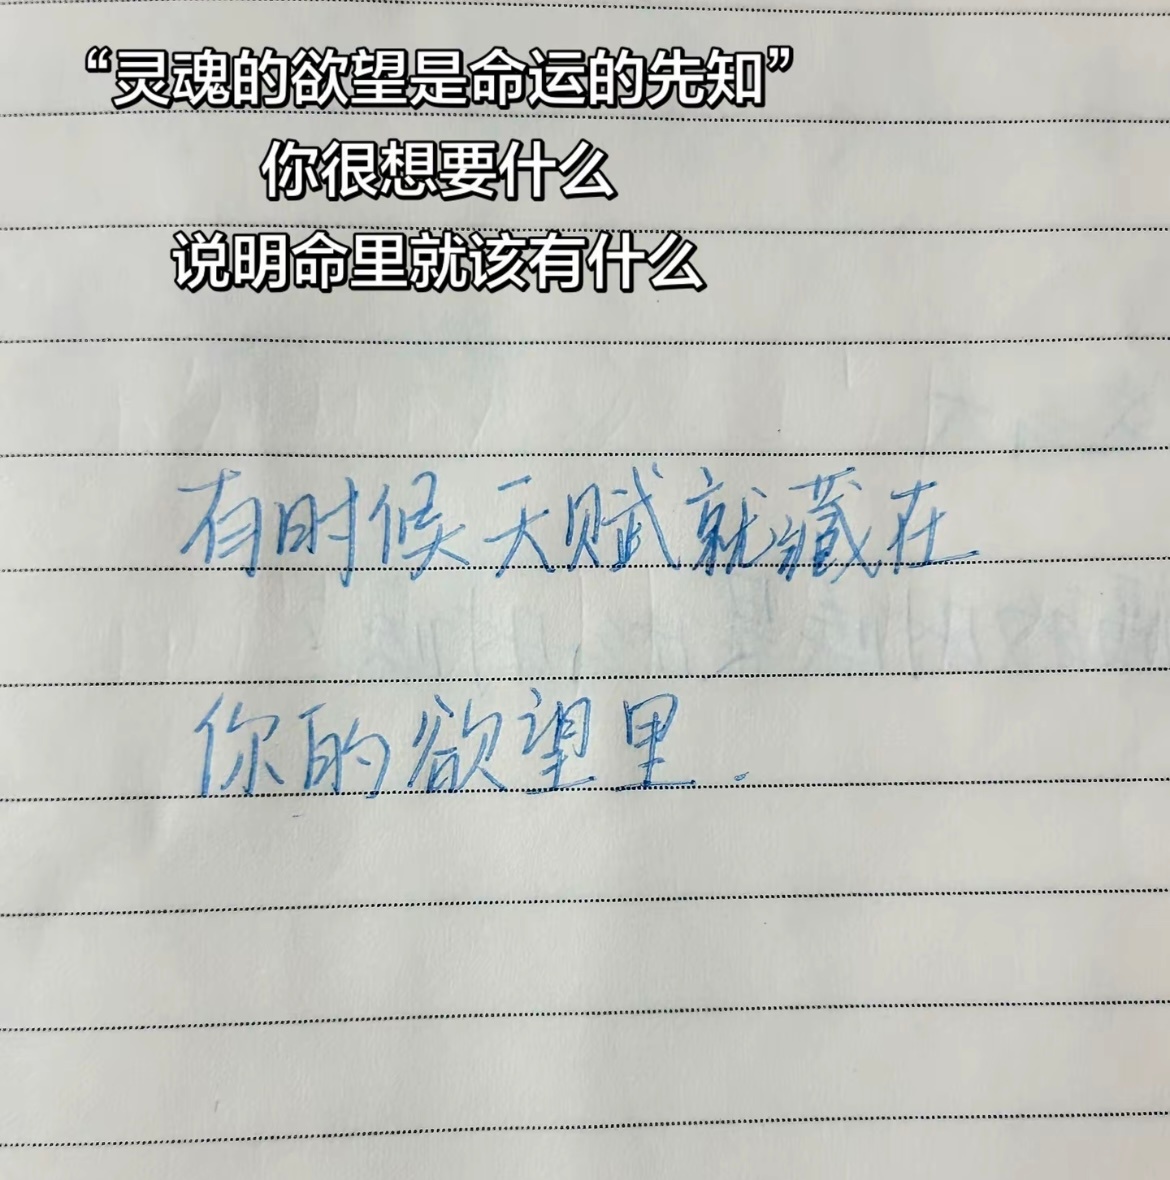 “灵魂的欲望是命运的先知”
你很想要什么
说明命里就该有什么
有时候天赋就藏在
你的欲望里.